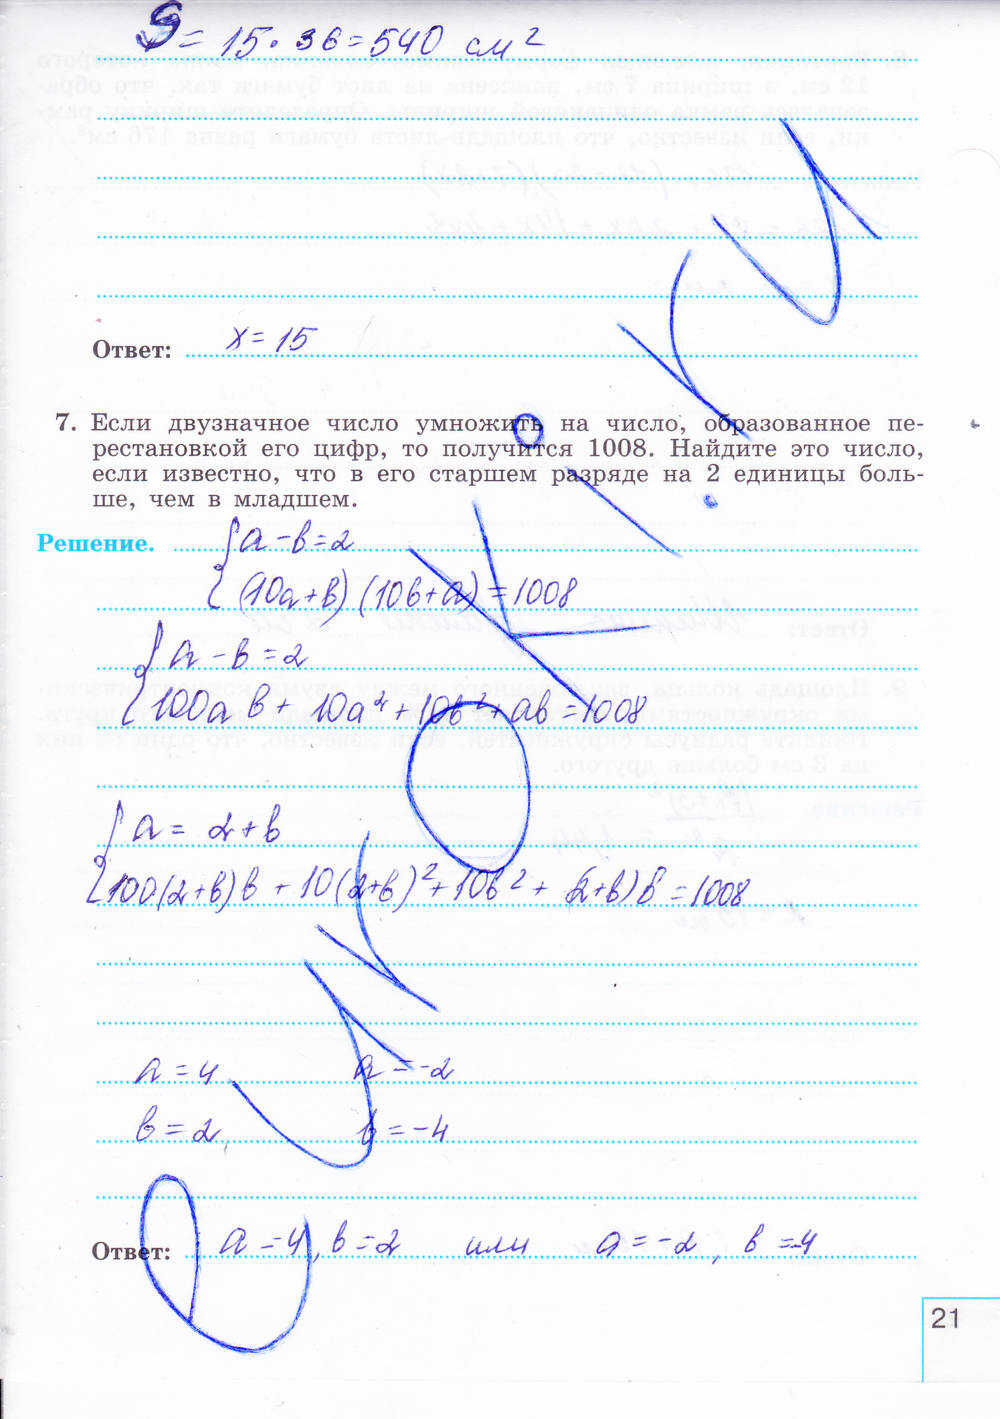 S = 15 · 36 = 540 см²
Ответ: x = 15
7. Если двузначное число умножить на число, образованное пе-
рестановкой его цифр, то получится 1008. Найдите это число,
если известно, что в его старшем разряде на 2 единицы боль-
ше, чем в младшем.
Решение. { a - b = 2
(10a + b) (10b + a) = 1008
{ a - b = 2
100a b + 10a² + 10b² + ab = 1008
{ a = 2 + b
100(2+b)b + 10(2+b)² + 10b² + (2+b)b = 1008
a = 4 a = -2
b = 2 b = -4
Ответ: a = 4, b = 2 или a = -2, b = -4
21